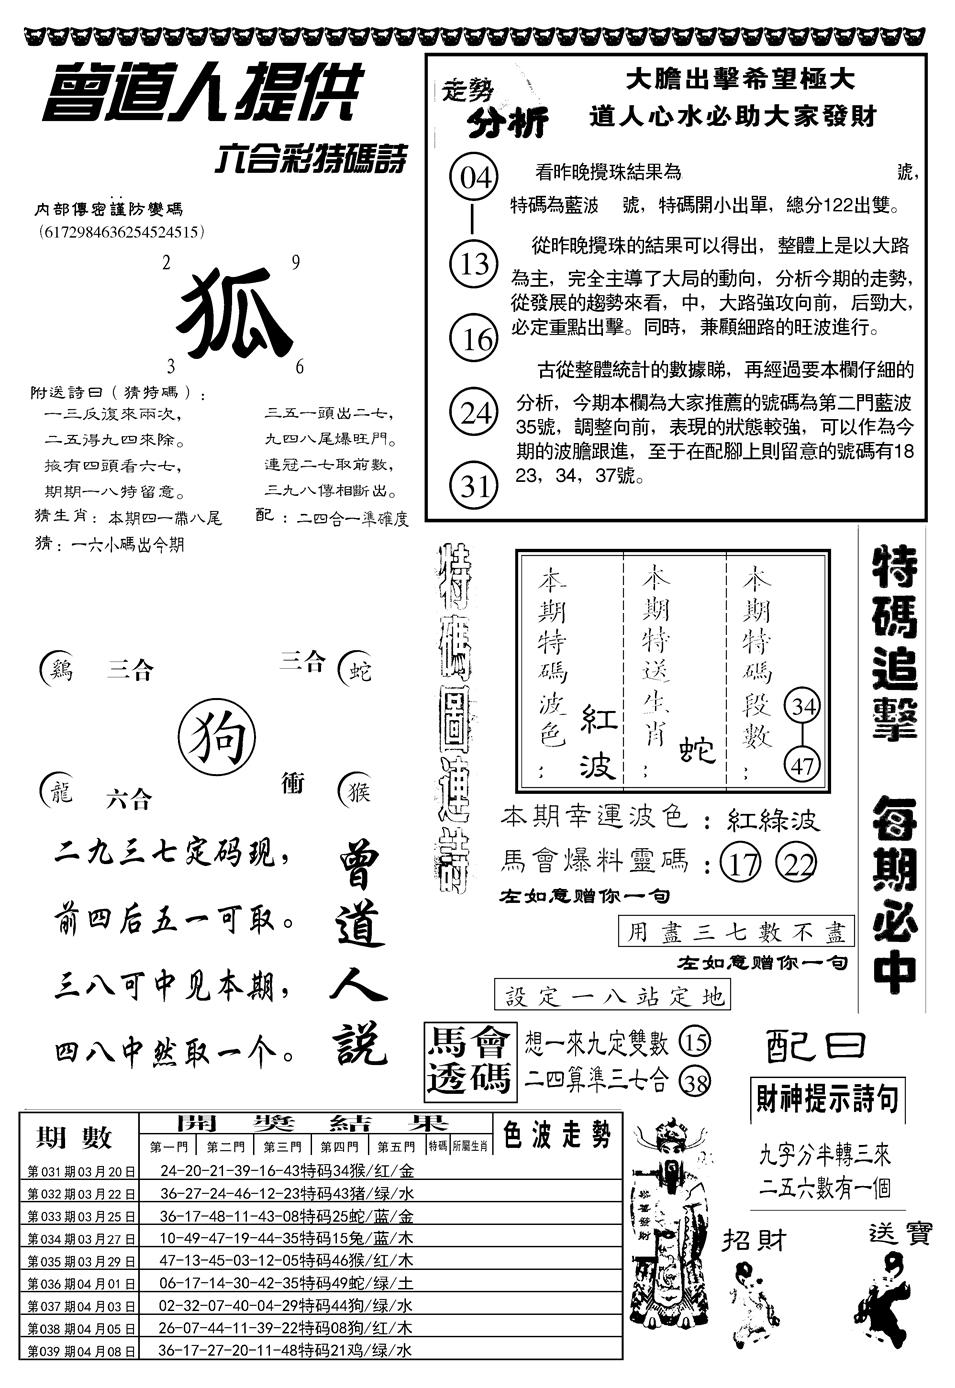 曾道人提供
六合彩特碼詩
內部傳密謹防變碼
（6172984636254524515）
2 9
狐
3 6
附送詩曰（猜特碼）：
一三反復來兩次，
二五得九四來除。
掖有四頭看六七，
期期一八特留意。
三五一頭出二七，
九四八尾爆旺門。
連冠二七取前數，
三九八傳相斷出。
猜生肖：本期四一帶八尾
配：二四合一準確度
猜：一六小碼出今期
走勢
分析
大膽出擊希望極大
道人心水必助大家發財
04
13
16
24
31
看昨晚攪珠結果為 號，
特碼為藍波 號，特碼開小出單，總分122出雙。
從昨晚攪珠的結果可以得出，整體上是以大路
為主，完全主導了大局的動向，分析今期的走勢，
從發展的趨勢來看，中，大路強攻向前，后勁大，
必定重點出擊。同時，兼顧細路的旺波進行。
古從整體統計的數據睇，再經過要本欄仔細的
分析，今期本欄為大家推薦的號碼為第二門藍波
35號，調整向前，表現的狀態較強，可以作為今
期的波膽跟進，至于在配腳上則留意的號碼有18
23，34，37號。
鷄 三合
三合 蛇
狗
龍 六合
衝 猴
二九三七定码现，
前四后五一可取。
三八可中见本期，
四八中然取一个。
曾道人説
特碼圖連詩
本期特碼波色：
紅波
本期特送生肖：
蛇
本期特碼段數：
34
47
本期幸運波色：紅綠波
馬會爆料靈碼：17 22
左如意赠你一句
用盡三七數不盡
左如意赠你一句
設定一八站定地
特碼追擊 每期必中
馬會透碼
想一來九定雙數 15
二四算準三七合 38
配曰
財神提示詩句
九字分半轉三來
二五六數有一個
招財
送寶
恭喜發財
期數 開獎結果 色波走勢
第一門 第二門 第三門 第四門 第五門 特碼 所屬生肖
第031期03月20日 24-20-21-39-16-43特码34猴/红/金
第032期03月22日 36-27-24-46-12-23特码43猪/绿/水
第033期03月25日 36-17-48-11-43-08特码25蛇/蓝/金
第034期03月27日 10-49-47-19-44-35特码15兔/蓝/木
第035期03月29日 47-13-45-03-12-05特码46猴/红/木
第036期04月01日 06-17-14-30-42-35特码49蛇/绿/土
第037期04月03日 02-32-07-40-04-29特码44狗/绿/水
第038期04月05日 26-07-44-11-39-22特码08狗/红/木
第039期04月08日 36-17-27-20-11-48特码21鸡/绿/水